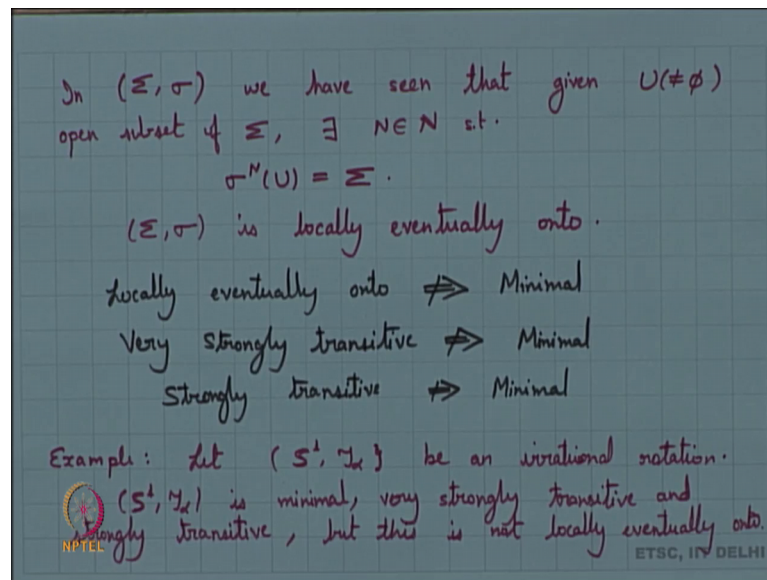 In (Σ, σ) we have seen that given U(≠ϕ)
open subset of Σ, ∃ N∈N s.t.
σᴺ(U) = Σ.
(Σ, σ) is locally eventually onto.
Locally eventually onto ⇏ Minimal
Very strongly transitive ⇏ Minimal
Strongly transitive ⇏ Minimal
Example: Let (S¹, T_α) be an irrational rotation.
(S¹, T_α) is minimal, very strongly transitive and
strongly transitive, but this is not locally eventually onto.
NPTEL
ETSC, IIT DELHI